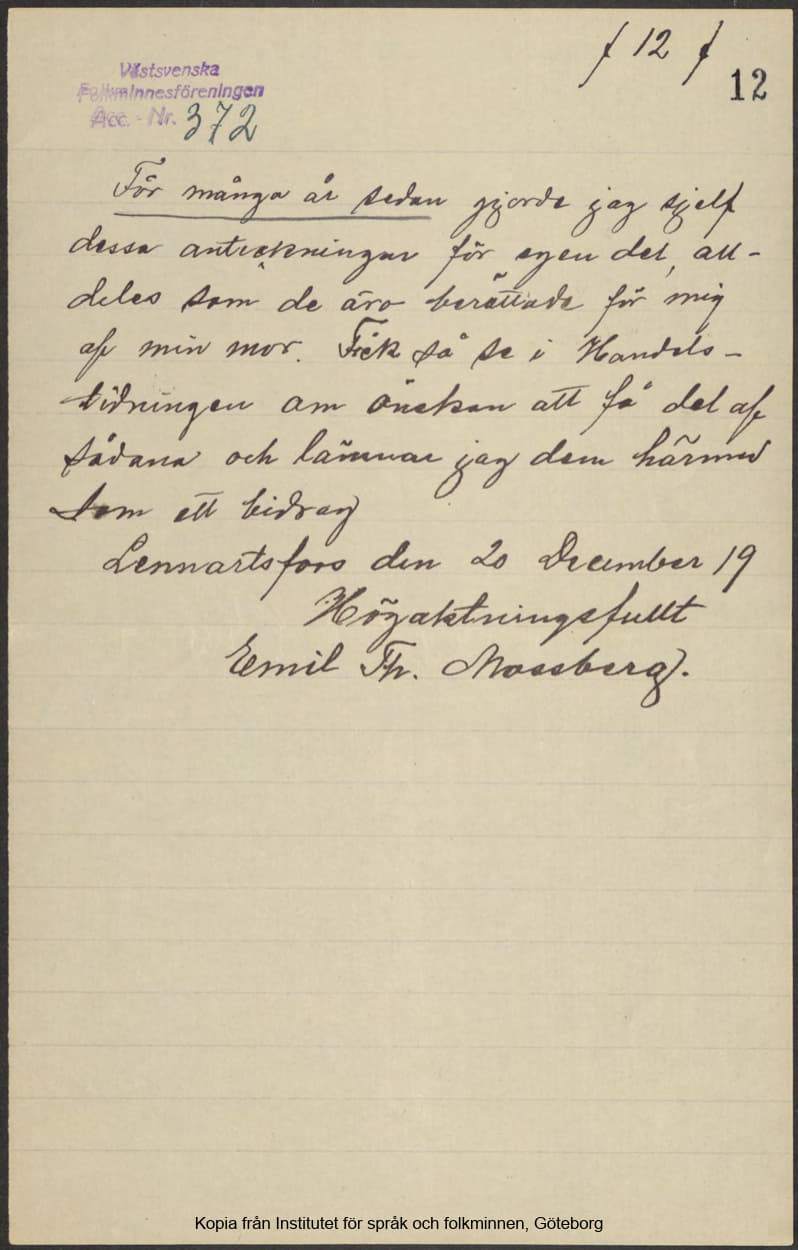 / 12 /
12
Västsvenska
Folkminnesföreningen
Acc. - Nr. 372
För många år sedan gjorde jag sjelf
dessa anteckningar för egen del, all-
deles som de äro berättade för mig
af min mor. Fick så se i Handels-
tidningen om önskan att få del af
sådana och lämnar jag dem härmed
som ett bidrag
Lennartsfors den 20 December 19
Högaktningsfullt
Emil Th. Mossberg.
Kopia från Institutet för språk och folkminnen, Göteborg